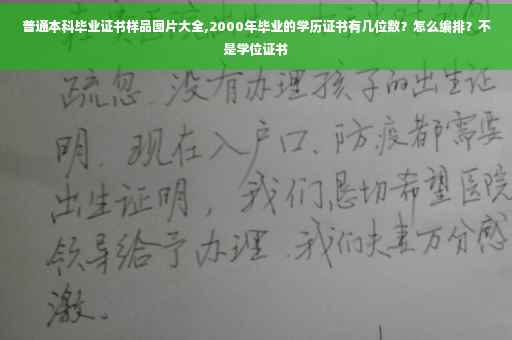 普通本科毕业证书样品图片大全,2000年毕业的学历证书有几位数？怎么编排？不
是学位证书
疏忽.没有办理孩子的出生证
明.现在入户口、防疫都需要
出生证明，我们恳切希望医院
领导给予办理.我们夫妻万分感
激.